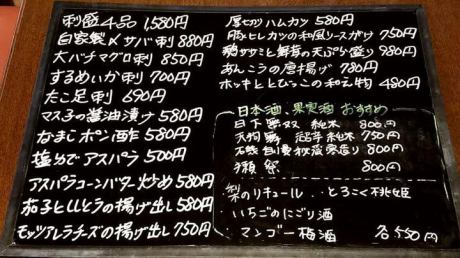 刺盛4品 1,580円
自家製〆サバ刺 880円
大バチマグロ刺 850円
するめいか刺 700円
たこ足刺 690円
マス子の醤油漬け 580円
なまこポン酢 580円
塩ゆで アスパラ 500円
アスパラコーンバター炒め 580円
茄子とししとうの揚げ出し 580円
モッツアレラチーズの揚げ出し 750円
厚切りハムカツ 580円
豚ヒレカツの和風ソースがけ 750円
鶏ササミと舞茸の天ぷら盛り 980円
あんこうの唐揚げ 780円
ホッキととびっこの和え物 480円
日本酒、果実酒 おすすめ
日下無双 純米 800円
天狗舞 純米 750円
磯自慢 秋 造り 800円
獺祭 800円
梨のリキュール・・とろこく桃姫
いちごのにごり酒
マンゴー梅酒 各550円